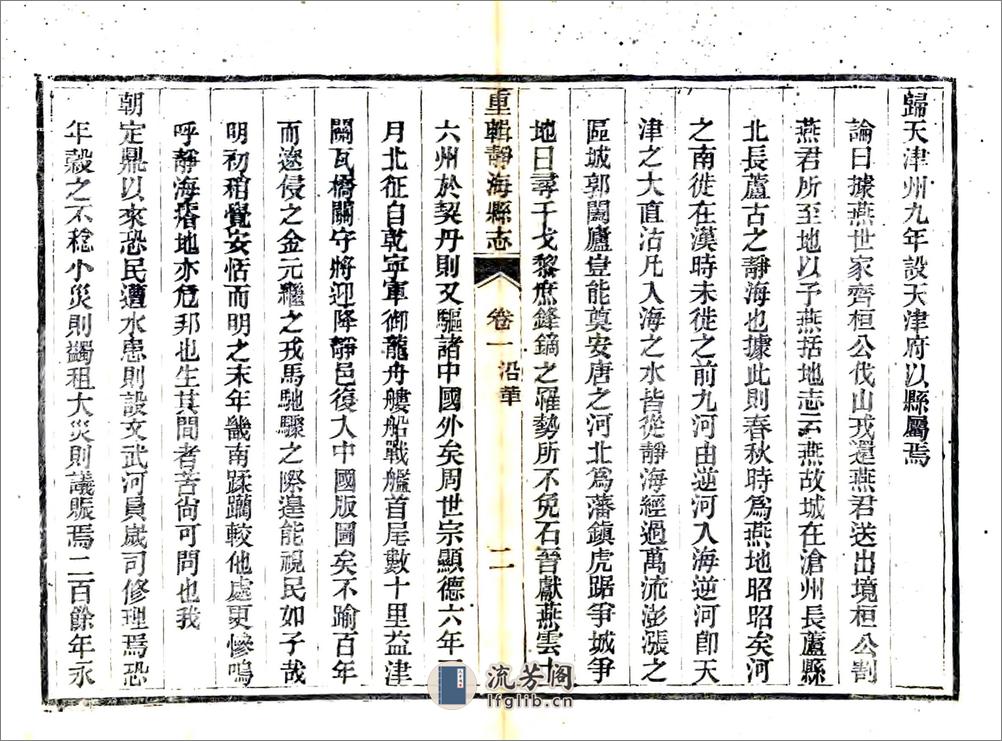 歸天津州九年設天津府以縣屬焉
論曰據燕世家齊桓公伐山戎還燕君送出境桓公割
燕君所至地以予燕括地志云燕故城在滄州長蘆縣
北長蘆古之靜海也據此則春秋時爲燕地昭昭矣河
之南徙在漢時未徙之前九河由逆河入海逆河卽天
津之大直沽凡入海之水皆從靜海經過萬流澎漲之
區城郭閭廬豈能奠安唐之河北爲藩鎮虎踞爭城爭
地日尋干戈黎庶鋒鏑之罹勢所不免石晉獻燕雲十
重輯靜海縣志
卷一 沿革
二
六州於契丹則又驅諸中國外矣周世宗顯德六年
月北征自乾寧軍御龍舟艛船戰艦首尾數十里益津
關瓦橋關守將迎降靜邑復入中國版圖矣不踰百年
而遼侵之金元繼之戎馬馳驟之際遑能視民如子哉
明初稍覺安恬而明之末年畿南蹂躪較他處更慘嗚
呼靜海瘠地亦危邦也生其間者苦尙可問也我
朝定鼎以來恐民遭水患則設文武河員歲司修理焉恐
年穀之不稔小災則蠲租大災則議賑焉二百餘年永
流芳阁
lfglib.cn